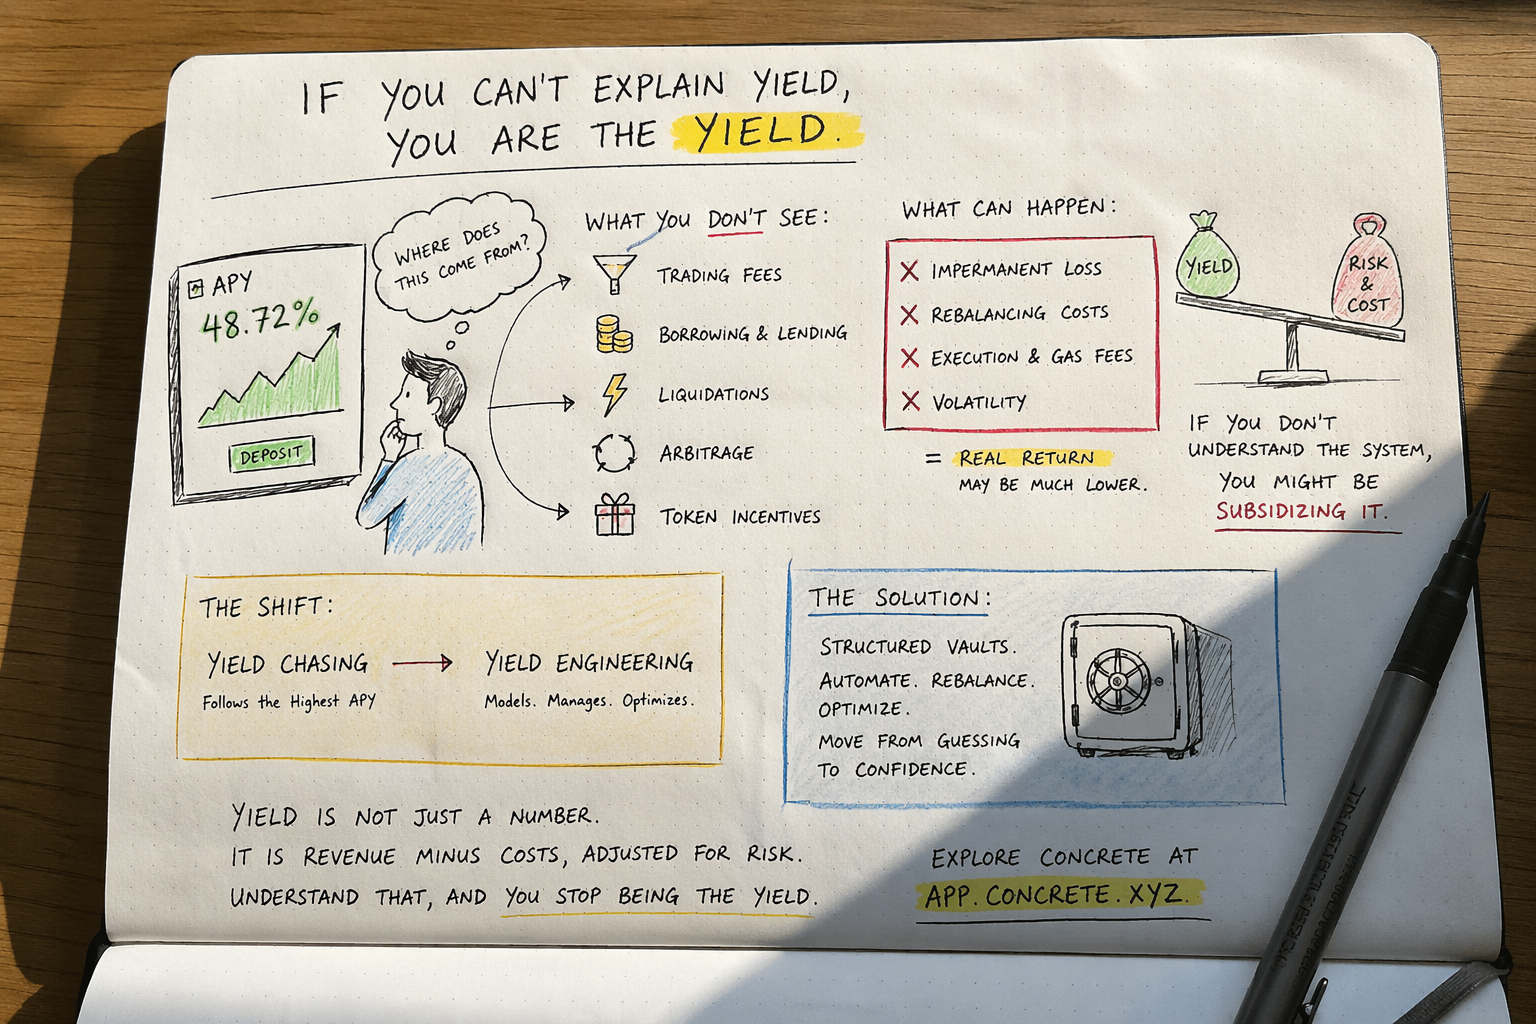 IF YOU CAN'T EXPLAIN YIELD,
YOU ARE THE YIELD.
APY
48.72%
DEPOSIT
WHERE DOES
THIS COME FROM?
WHAT YOU DON'T SEE:
TRADING FEES
BORROWING & LENDING
LIQUIDATIONS
ARBITRAGE
TOKEN INCENTIVES
WHAT CAN HAPPEN:
X IMPERMANENT LOSS
X REBALANCING COSTS
X EXECUTION & GAS FEES
X VOLATILITY
= REAL RETURN
MAY BE MUCH LOWER.
YIELD
RISK
&
COST
IF YOU DON'T
UNDERSTAND THE SYSTEM,
YOU MIGHT BE
SUBSIDIZING IT.
THE SHIFT:
YIELD CHASING → YIELD ENGINEERING
Follows the Highest APY
Models. Manages. Optimizes.
THE SOLUTION:
STRUCTURED VAULTS.
AUTOMATE. REBALANCE.
OPTIMIZE.
MOVE FROM GUESSING
TO CONFIDENCE.
YIELD IS NOT JUST A NUMBER.
IT IS REVENUE MINUS COSTS, ADJUSTED FOR RISK.
UNDERSTAND THAT, AND YOU STOP BEING THE YIELD.
EXPLORE CONCRETE AT
APP.CONCRETE.XYZ.